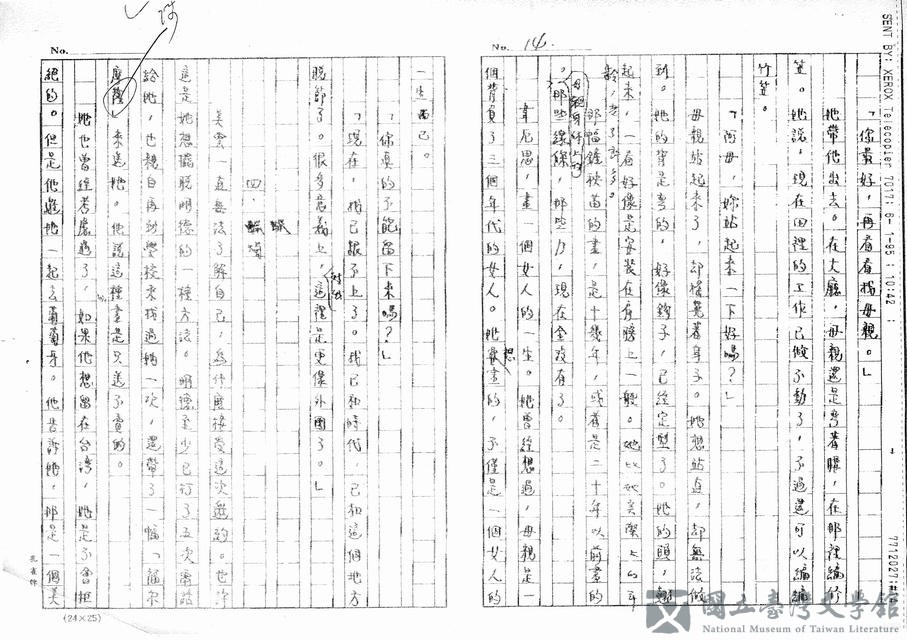 SENT BY: XEROX Telecopier 7017; 6- 1-95 ; 10:42 ;
No. 14.
「你最好，再看看我母親。」
她帶他出去。在大廳，母親還是彎著腰，在那裡編竹
笠。她說，現在田裡的工作已做不動了，不過還可以編編
竹笠。
「阿母，妳站起來一下好嗎？」
母親站起來了，却還彎著身子。她想站直，却無法做
到。她的背是彎的，好像鉤子，已經定型了。她的頭，翹
起來，一看好像是安裝在肩膀上一般。她比她實際上的年
齡，老了許多。
那幅鍾秧苗的畫，是十幾年，或者是二十年以前畫的
。母親身体上的那些線條，那些力，現在全沒有了。
韋尼思，畫一個女人的一生。她曾經想過，母親是一
個背負了三個年代的女人。她最想畫的，不僅是一個女人的
No.
一生而已。
「你真的不能留下來嗎？」
「現在，我已跟不上了。我已和時代，已和這個地方
脫節了。很多意義上，對我這裡是更像外國了。」
四、蠟
美雲一直無法了解自己，為什麼接受這次邀約。也許
這是她想擺脫明德的一種方法。明德至少已打了五次電話
給她，也親自再到學校來找過她一次，還帶了一幅「福爾
摩莎」來送她。他說這種畫是只送不賣的。
她也曾經考慮過了，如果他想留在台灣，她是不會拒
絕的。但是他邀她一起去葡萄牙。他告訴她，那是一個美
(24×25)
國立臺灣文學館
National Museum of Taiwan Literature